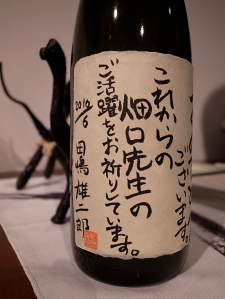 ございます。
これからの
畑口先生の
ご活躍をお祈りしています。
2019/6 田嶋雄二郎